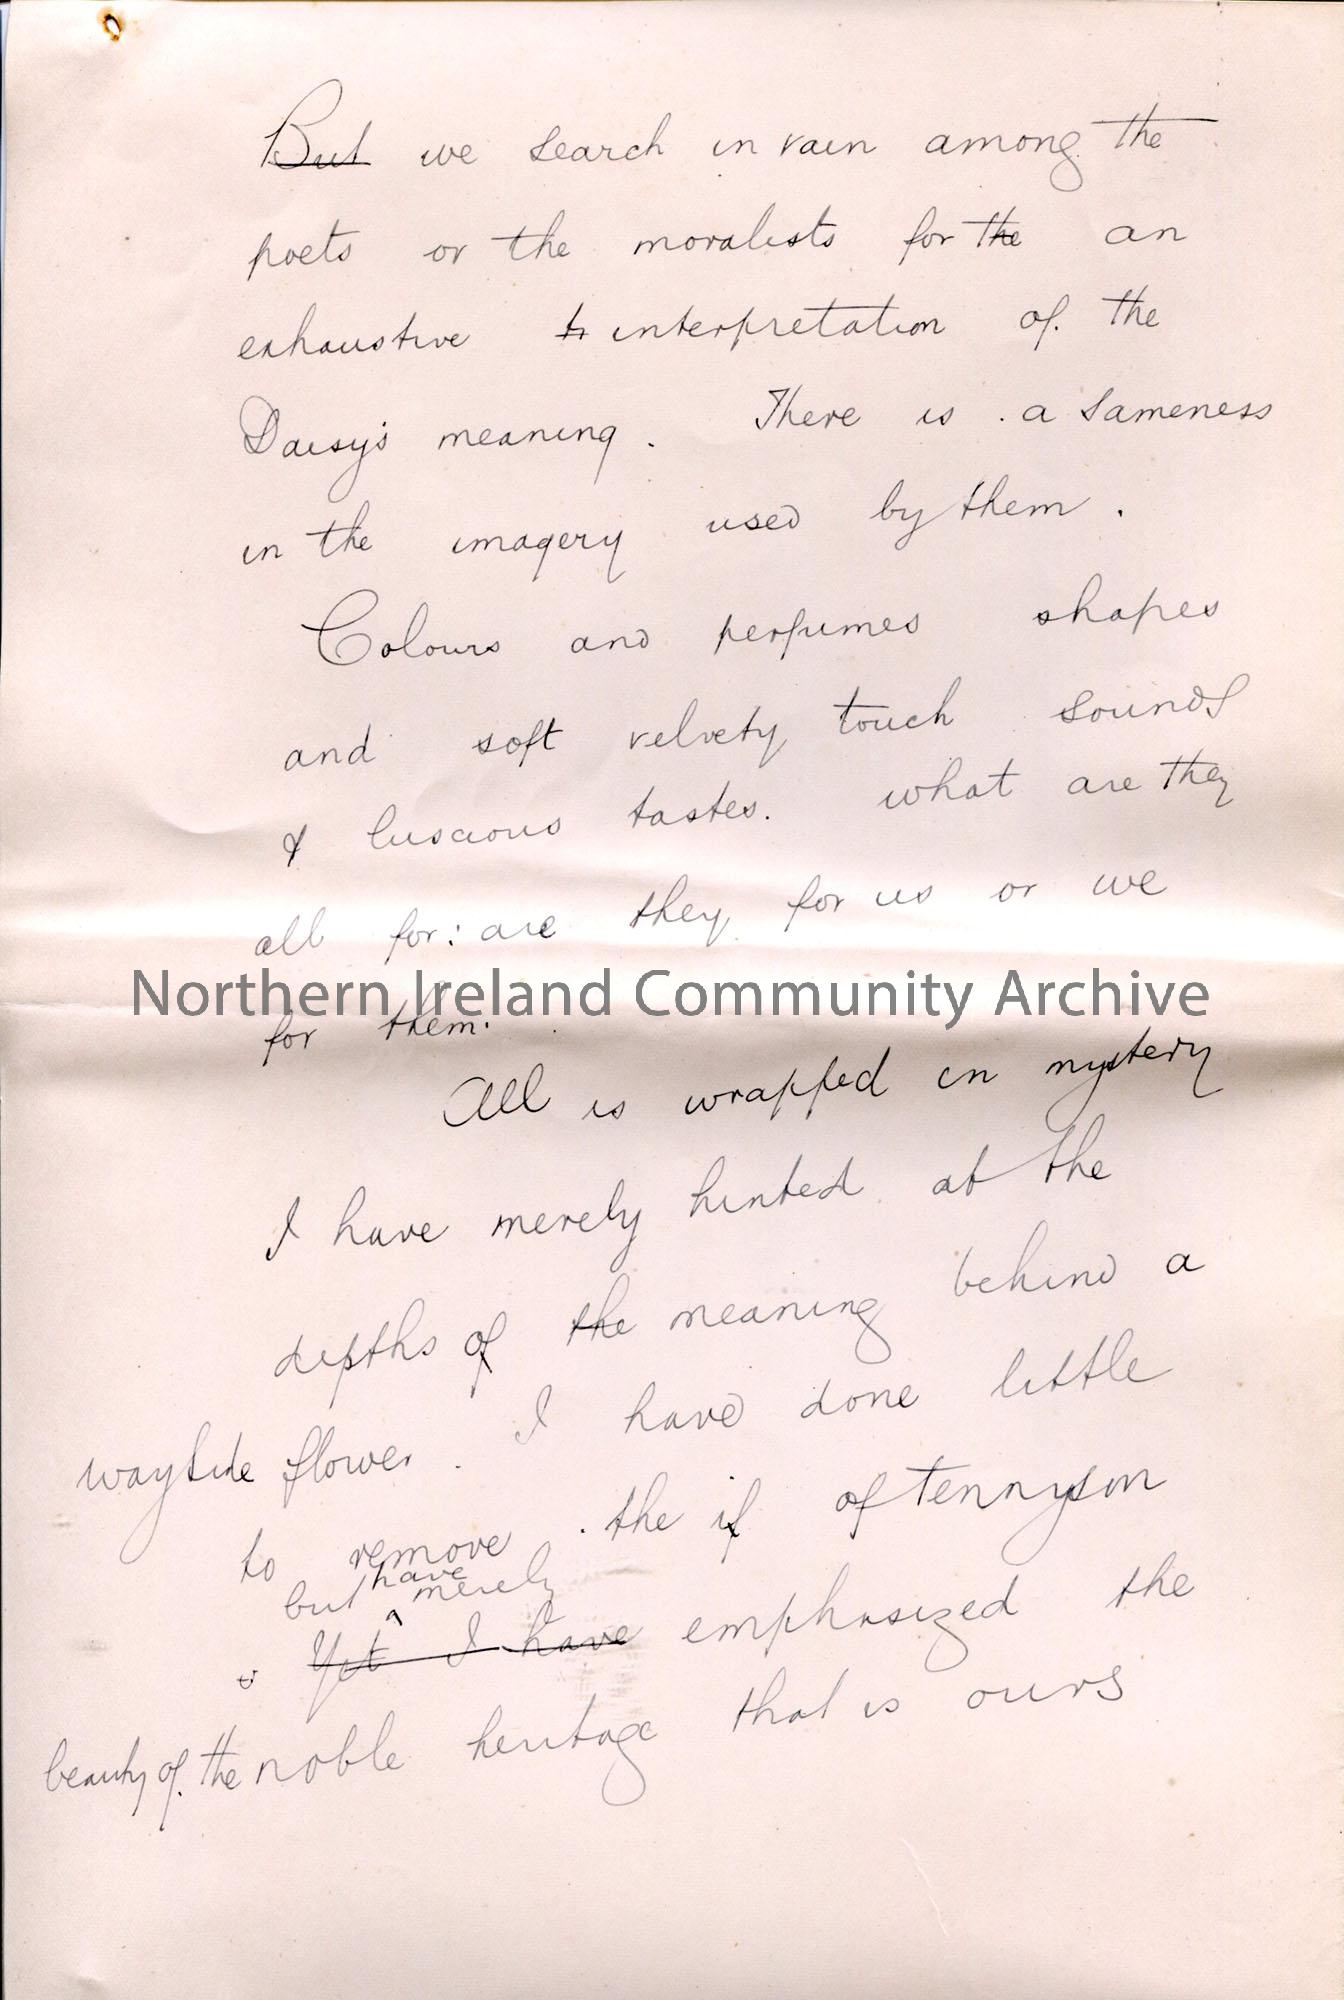 But we search in vain among the
poets or the moralists for the an
exhaustive in interpretation of the
Daisy's meaning. There is a sameness
in the imagery used by them.
Colours and perfumes shapes
and soft velvety touch sounds
& luscious tastes. what are they
all for: are they for us or we
Northern Ireland Community Archive
for them.
All is wrapped in mystery
I have merely hinted at the
depths of the meaning behind a
wayside flower. I have done little
to remove the if of Tennyson
but have merely
Yet I have emphasized the
beauty of the noble heritage that is ours